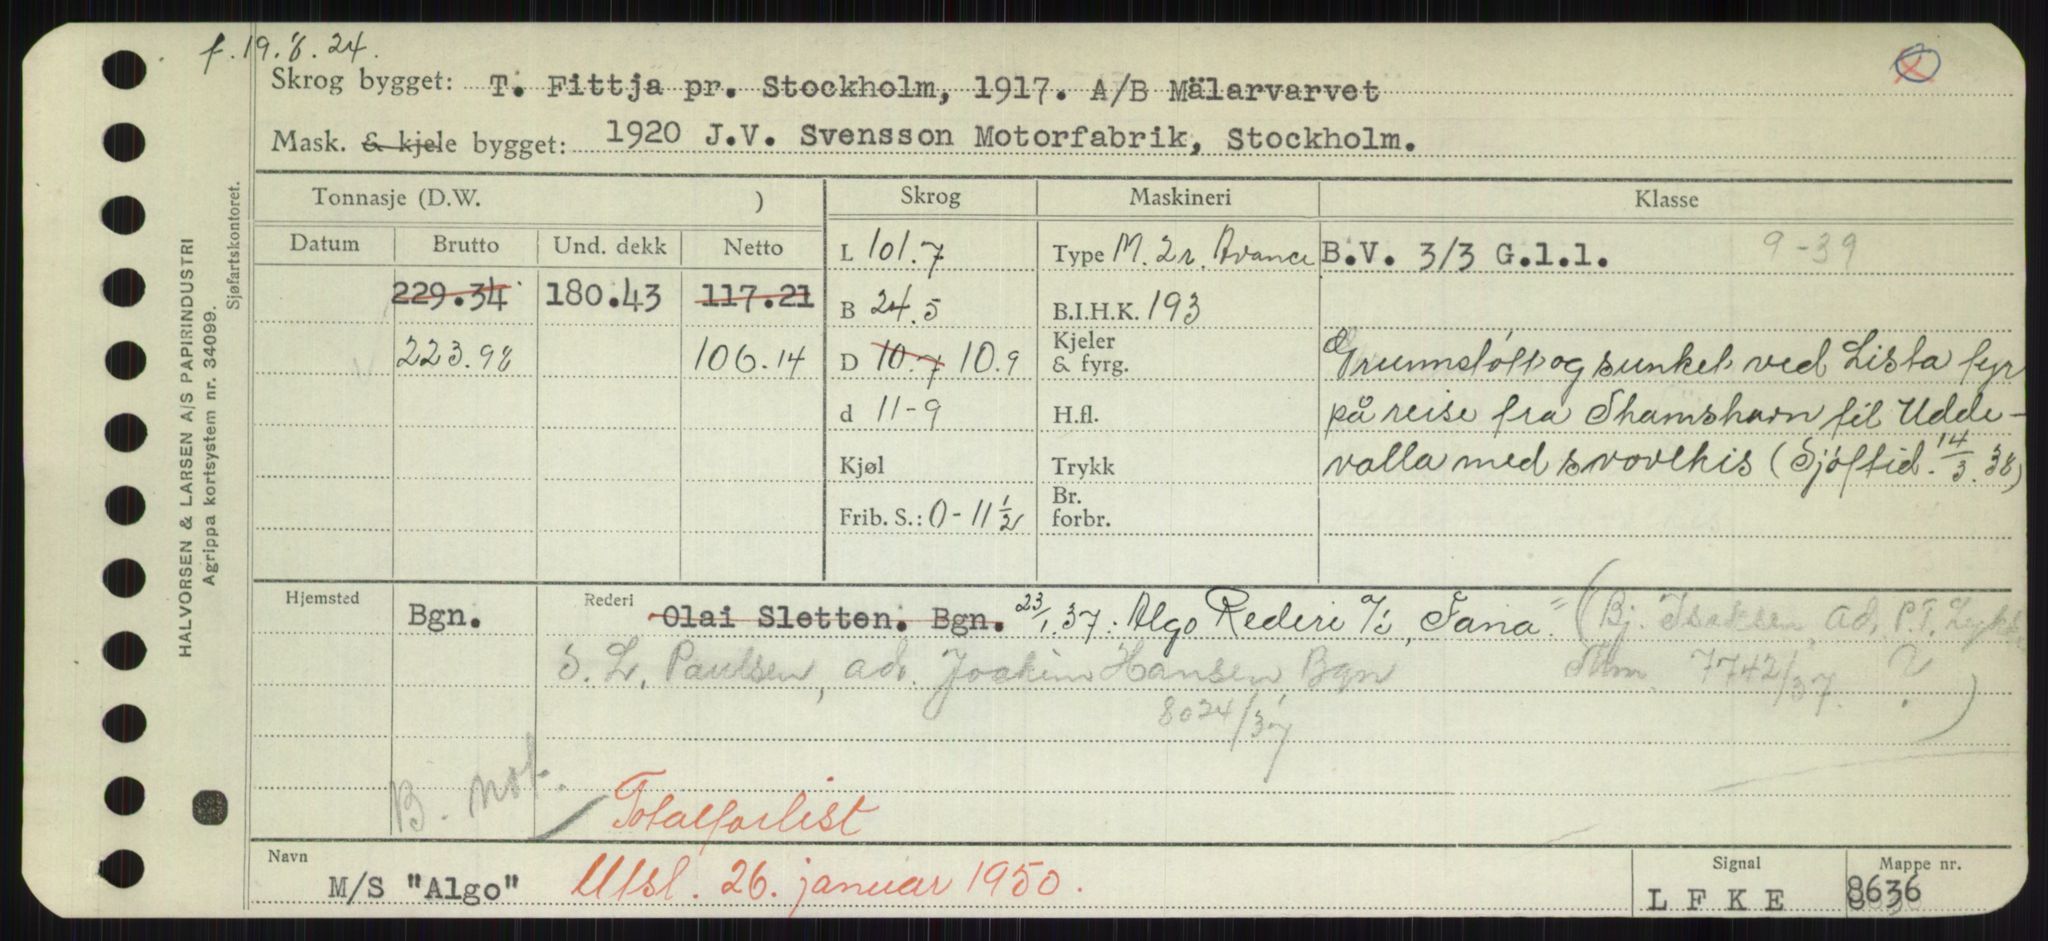 f. 19.8.24.
Skrog bygget: T. Fittja pr. Stockholm, 1917. A/B Mälarvarvet
Mask. & kjele bygget: 1920 J.V. Svensson Motorfabrik, Stockholm.
Tonnasje (D.W. ) Skrog Maskineri Klasse
Datum Brutto Und. dekk Netto L 101.7 Type M. 2r. Avance B.V. 3/3 G.l.l. 9-39
229.34 180.43 117.21 B 24.5 B.I.H.K. 193
223.98 106.14 D 10.7 10.9 Kjeler & fyrg. Grunnstött og sunket ved Lista fyr
d 11-9 H.fl. på reise fra Thamshavn til Udde-
Kjøl Trykk valla med svovlkis (Sjöftid. 14/3.38)
Frib. S.: 0-11 1/2 Br. forbr.
Hjemsted Bgn. Rederi Olai Sletten. Bgn. 23/1.37: Algo Rederi A/S, Fana (Bj. Isaksen, ad. P.T.
S. L. Paulsen, ad. Joakim Hansen, Bgn 7742/37. ?)
8024/37
B. not.
Totalforlist
Navn M/S "Algo" Utsl. 26. januar 1950. Signal L F K E Mappe nr. 8636
HALVORSEN & LARSEN A/S PAPIRINDUSTRI
Agrippa kortsystem nr. 34099.
Sjøfartskontoret.